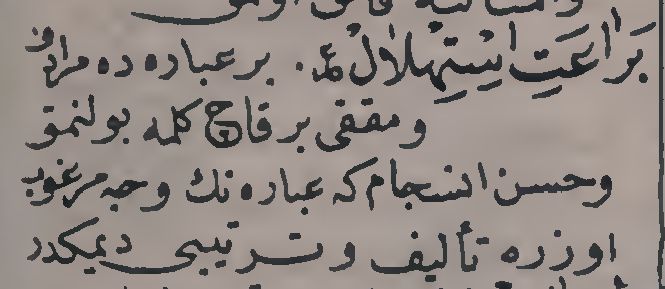 بَرَاعَتِ اسْتِهْلَالْ . بر عباره ده مرادف
و مقفى بر قاچ كلمه بولنمق
وحسن انسجام كه عباره نك وجه مرغوب
اوزره تأليف و ترتيبى ديمكدر